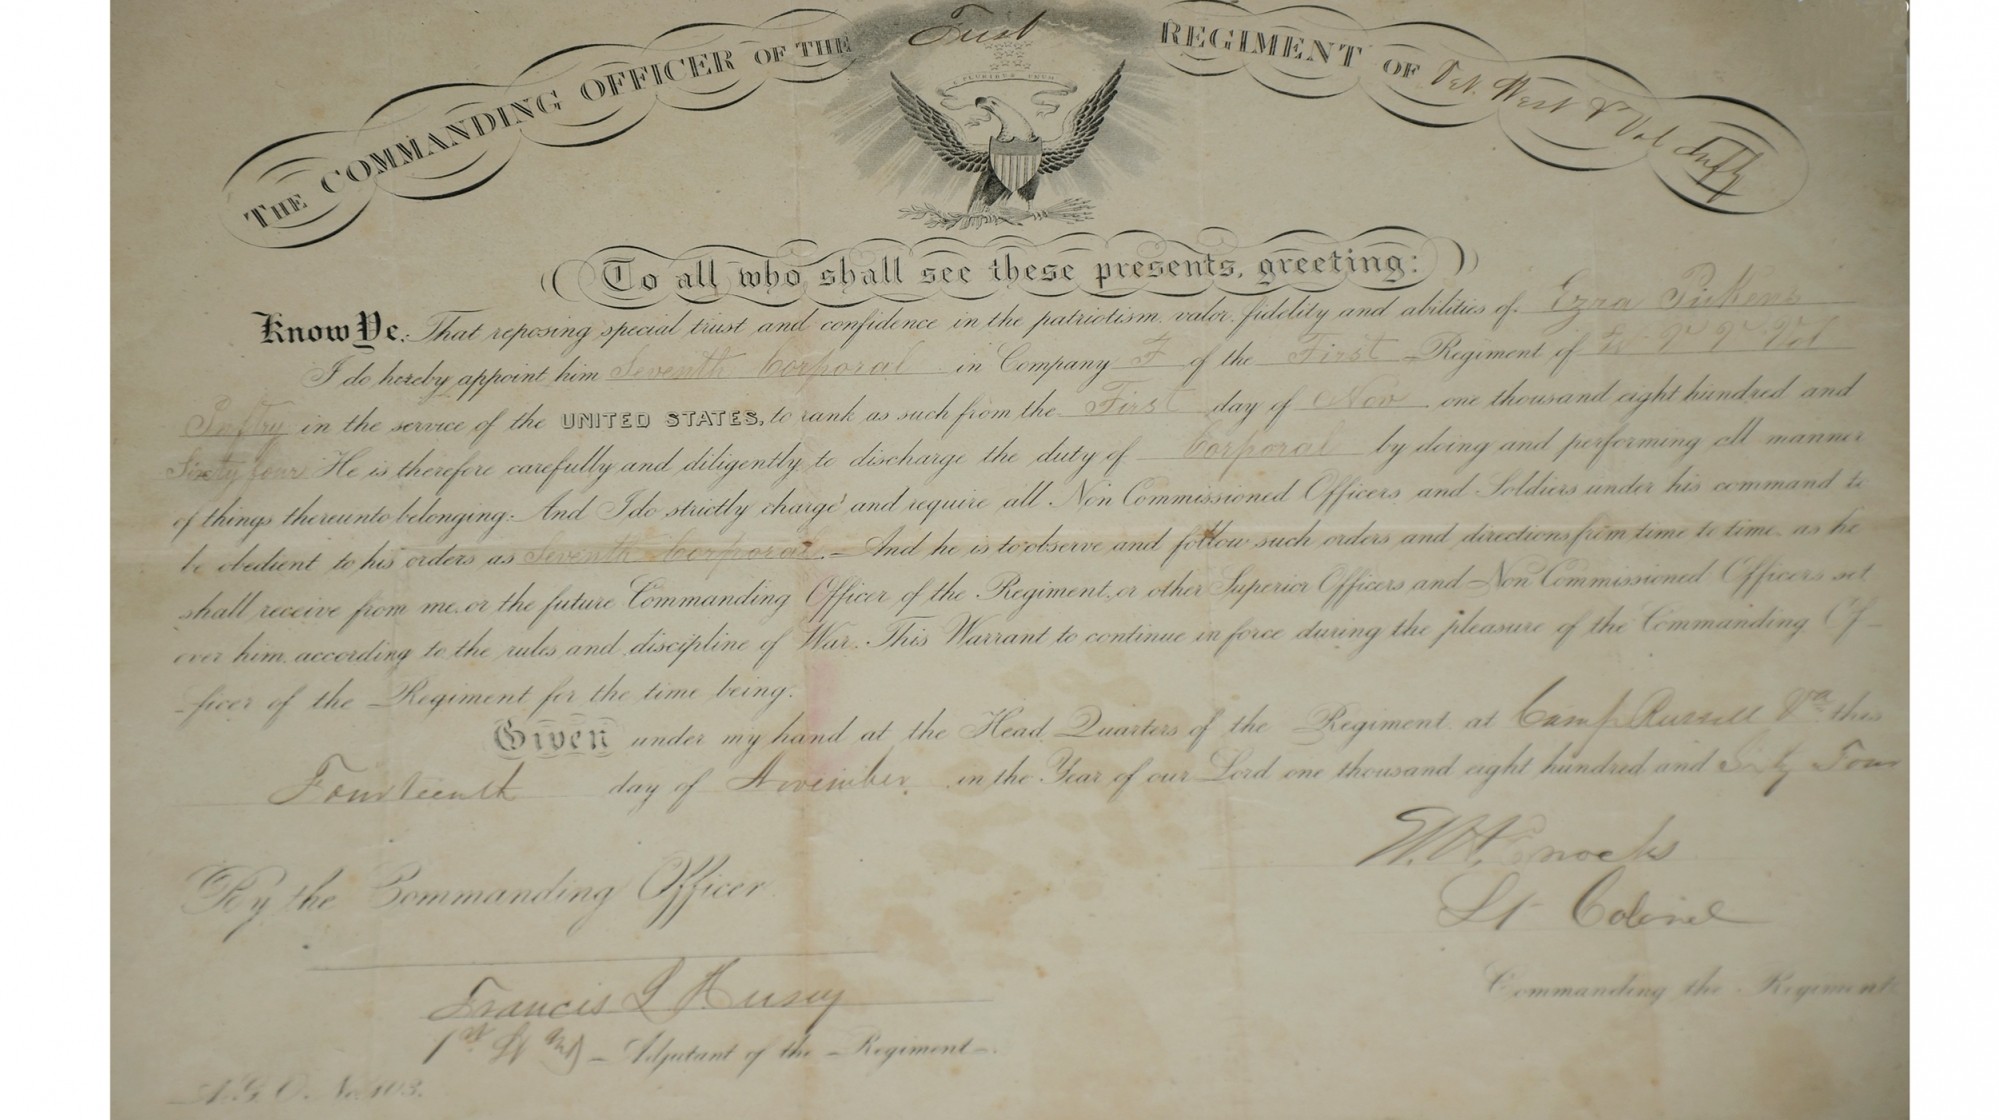 THE COMMANDING OFFICER OF THE First REGIMENT OF Vet. West Va Vol Infty
E PLURIBUS UNUM
To all who shall see these presents, greeting:
Know Ye: That reposing special trust and confidence in the patriotism, valor, fidelity and abilities of Ezra Pickens
I do hereby appoint him Seventh Corporal in Company F of the First Regiment of Vol
Inftry in the service of the UNITED STATES, to rank as such from the First day of Nov one thousand eight hundred and
Sixty four He is therefore carefully and diligently to discharge the duty of Corporal by doing and performing all manner
of things thereunto belonging. And I do strictly charge and require all Non Commissioned Officers and Soldiers under his command to
be obedient to his orders as Seventh Corporal. And he is to observe and follow such orders and directions from time to time, as he
shall receive from me, or the future Commanding Officer of the Regiment, or other Superior Officers and Non Commissioned Officers set
over him, according to the rules and discipline of War. This Warrant to continue in force during the pleasure of the Commanding Of-
-ficer of the Regiment for the time being.
Given under my hand at the Head Quarters of the Regiment at Camp Russell Va this
Fourteenth day of November in the Year of our Lord one thousand eight hundred and Sixty Four
W. H. Enochs
Lt Colonel
By the Commanding Officer
Commanding the Regiment
Francis L Hersey
1st Lt and Adjutant of the Regiment.
A.G.O. No. 103.